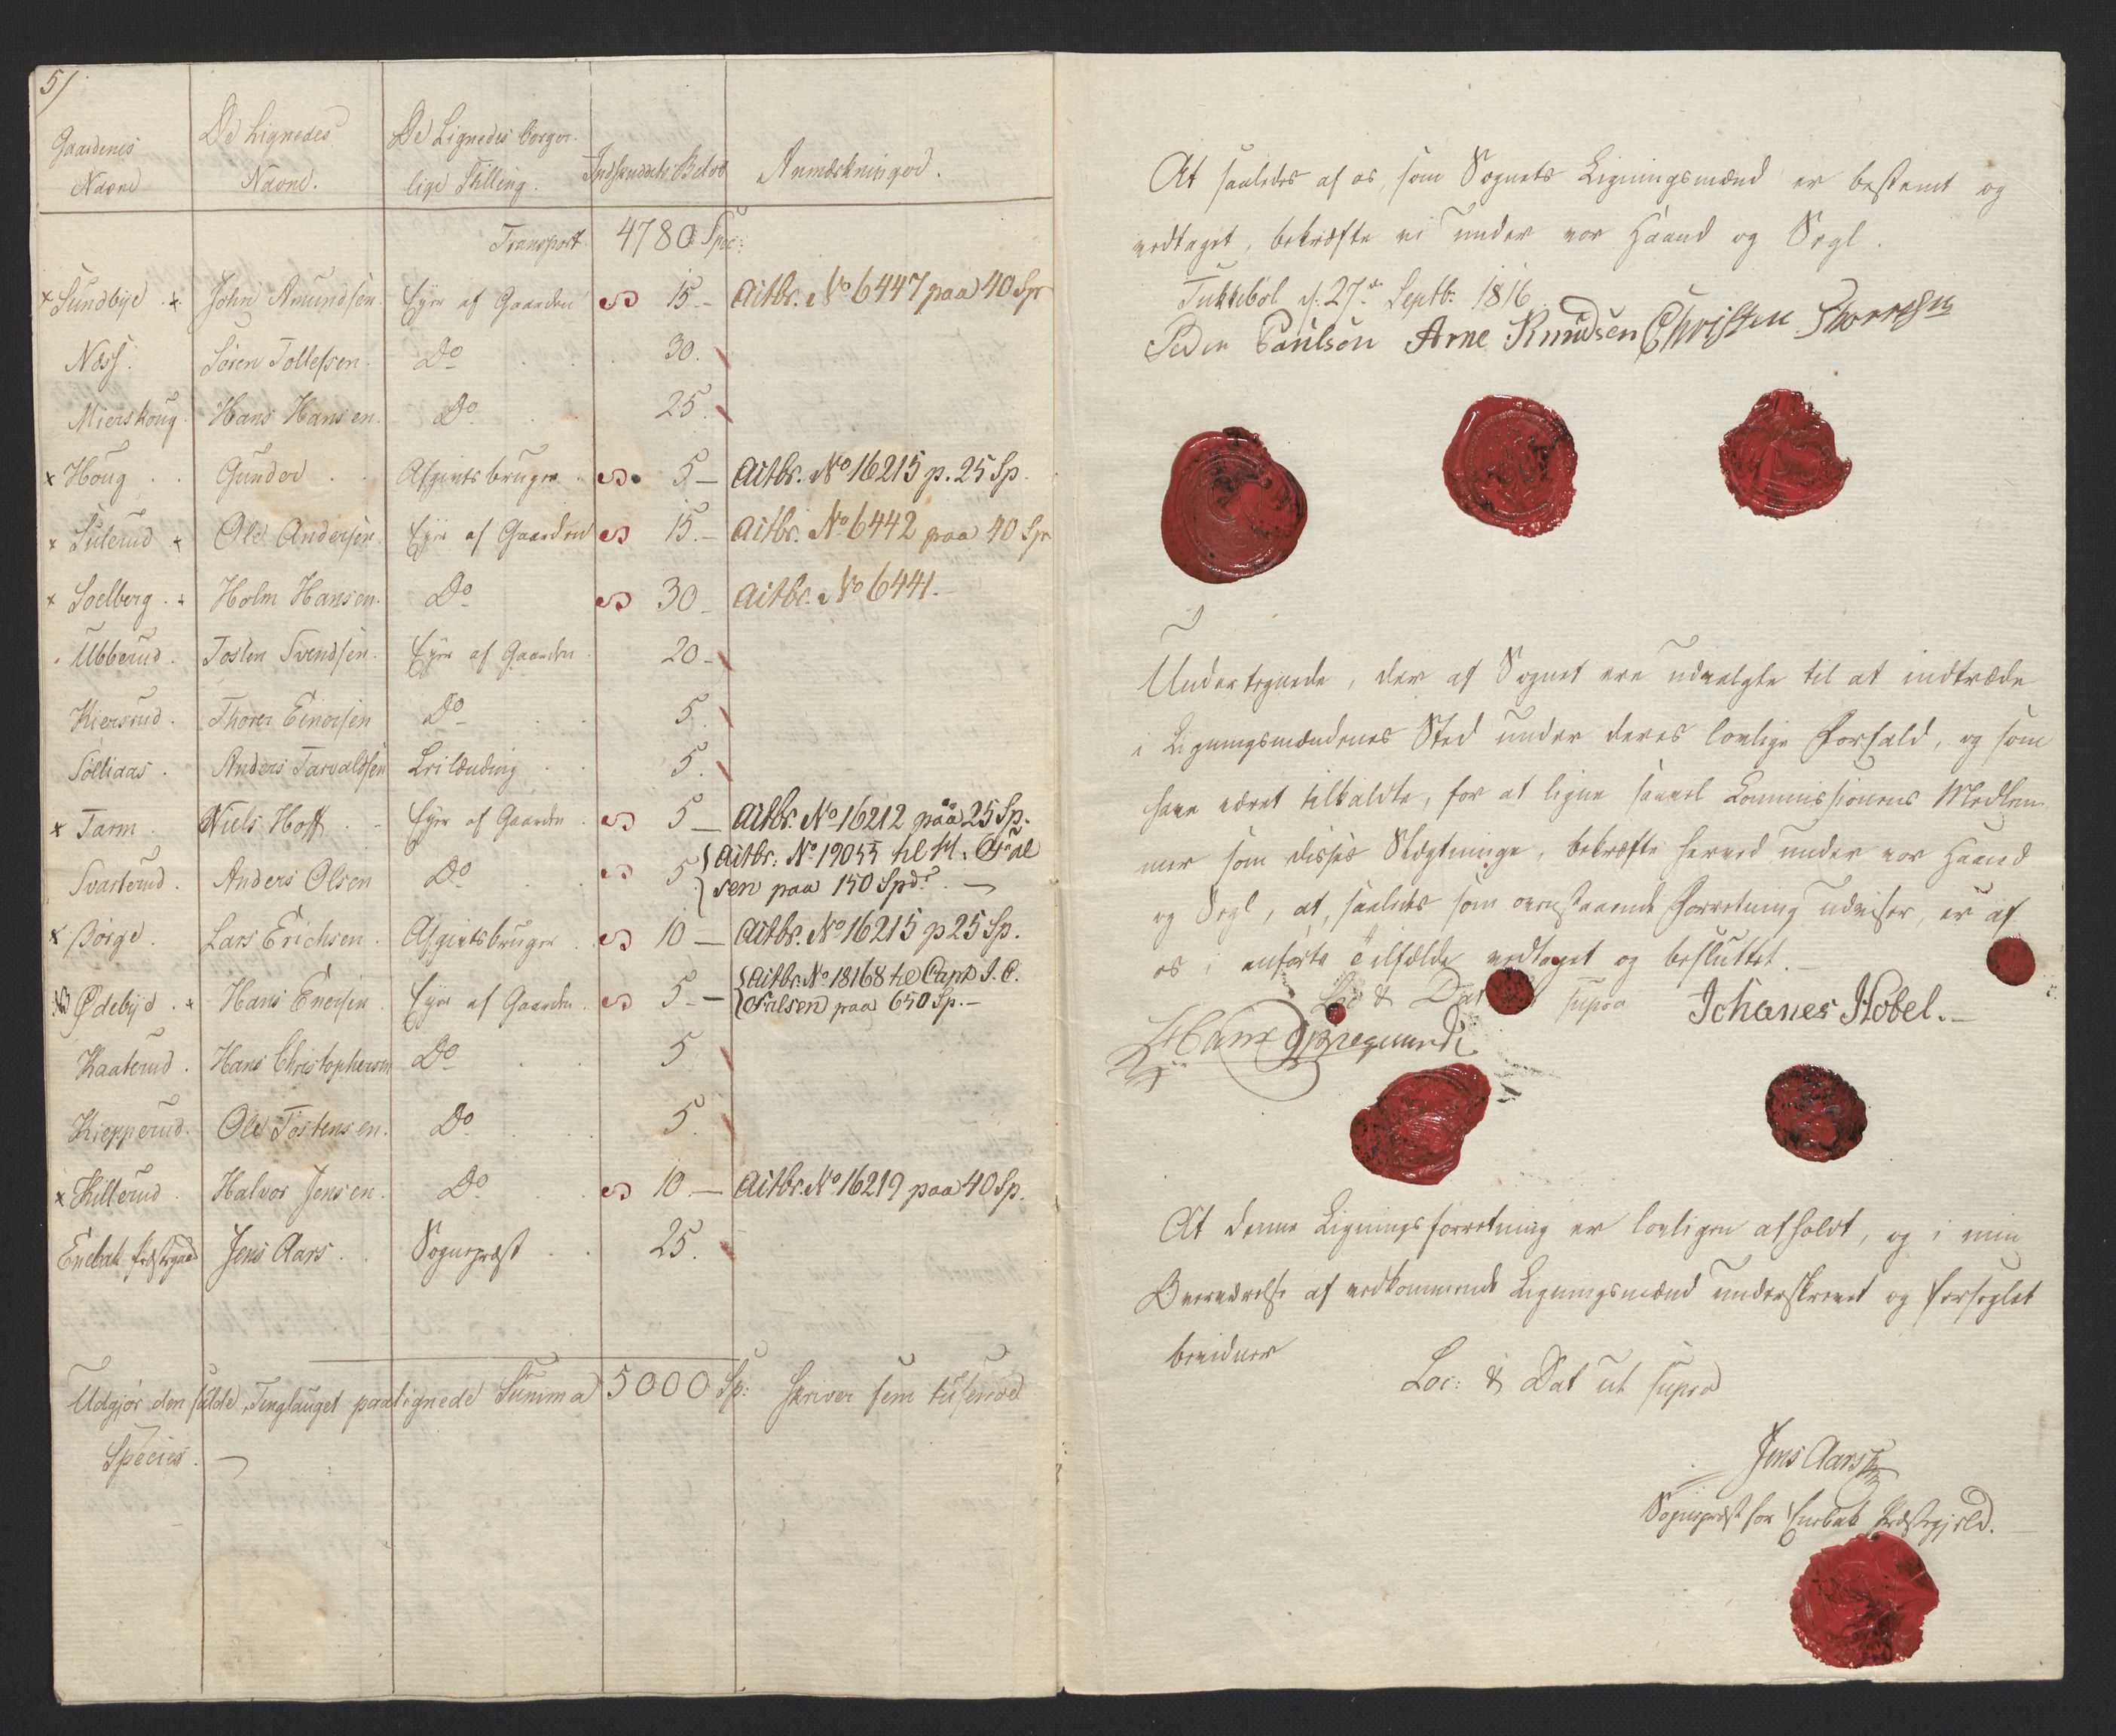 5/
Gaardenes Navne | De Lignedes Navne. | De Lignedes borgerlige Stilling. | Indskuddets Beløb | Anmærkninger.
Transport 4780 Spec:
× Sundbye × | John Amundsen | Eyer af Gaarden | 15 – | Actbr. No 6447 paa 40 Sp
Næss. | Søren Tollefsen. | Do | 30.
Mierskoug | Hans Hansen. | Do | 25.
× Houg | Gunder | Afgivtsbruger | 5 – | Actbr. No 16215 p. 25 Sp.
× Sulerud × | Ole Andersen. | Eyer af Gaarden | 15. – | Actbr. No 6442 paa 40 Sp
× Soelberg. × | Holm Hansen. | Do | 30 – | Actbr. No 6441. –
Ubberud. | Tosten Svendsen. | Eyer af Gaarden | 20 –
Kiersrud. | Thorer Einersen | Do | 5.
Tølliaas. | Anders Tarvaldsen | Leilænding | 5.
× Tarm. | Niels Hoff | Eyer af Gaarden | 5 – | Actbr. No 16212 paa 25 Sp.
Svarterud. | Anders Olsen | Do | 5. | Actbr: No 19055 til H. Falsen paa 150 Spdr. –
× Børge. | Lars Erichsen. | Afgivtsbruger | 10 – | Actbr. No 16215 p 25 Sp.
Ødebye. × | Hans Enersen. | Eyer af Gaarden | 5 – | Actbr. No 18168 til Capt J. C. Falsen paa 650 Sp. –
Kaaterud. | Hans Christophersen | Do | 5
Kiepperud. | Ole Tostensen. | Do | 5.
× Killerud | Halvor Jensen. | Do | 10 – | Actbr. No 16219 paa 40 Sp.
Enebak Præstegaard | Jens Aars. | Sognepræst | 25.
Udgjør den fulde, Tinglauget paalignede Summa 5000 Sp: skriver fem tusende
Species. –
At saaledes af os, som Sognets Ligningsmænd er bestemt og
vedtaget, bekræfte vi under vor Haand og Segl.
d. 27de Septb. 1816.
Peder Paulsøn Arne Knudsen Christen
Undertegnede, der af Sognet ere udvalgte til at indtræde
i Ligningsmændenes Sted under deres lovlige Forfald, og som
have været tilkaldte, for at ligne saavel Commissionens Medlem-
mer som disses Slægtninge, bekræfte herved under vor Haand
og Segl, at, saaledes som ovenstaaende Forretning udviser, er af
os i anførte Tilfælde vedtaget og besluttet. –
Loc & Dat supra Johanes Stobel. –
Hans
At denne Ligningsforretning er lovligen afholdt, og i min
Overværelse af vedkommende Ligningsmænd underskrevet og forseglet
bevidner
Loc: & Dat ut supra
Jens Aars
Sognepræst for Enebak Præstegjeld.